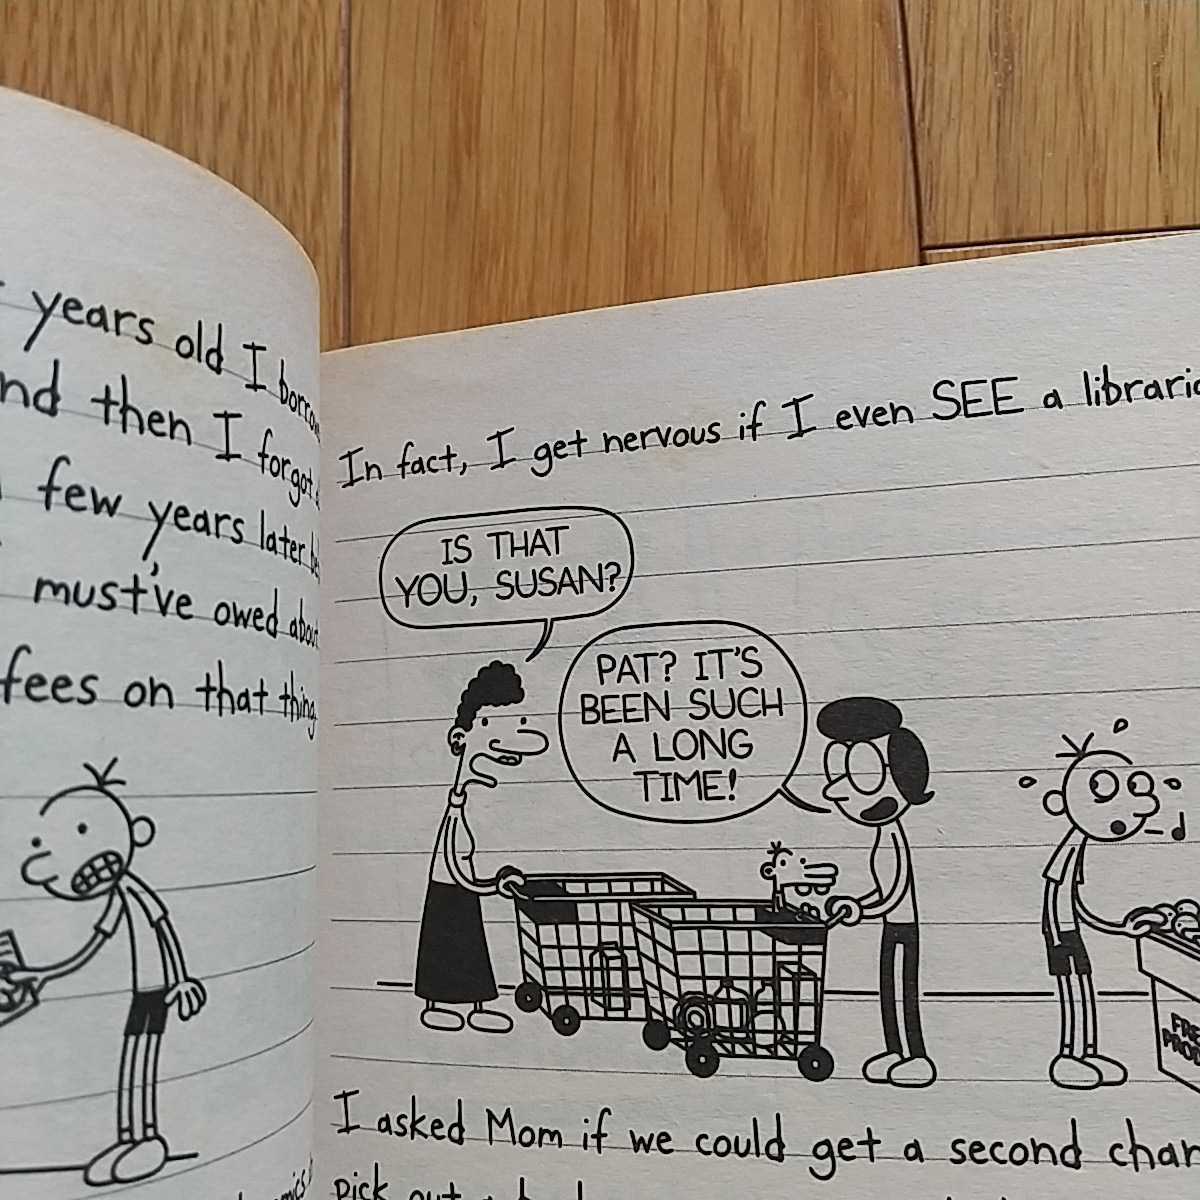 years old I
then I forgot
few years later
must've owed about
fees on that thing
In fact, I get nervous if I even SEE a
IS THAT
YOU, SUSAN?
PAT? IT'S
BEEN SUCH
A LONG
TIME!
I asked Mom if we could get a second
pick out a